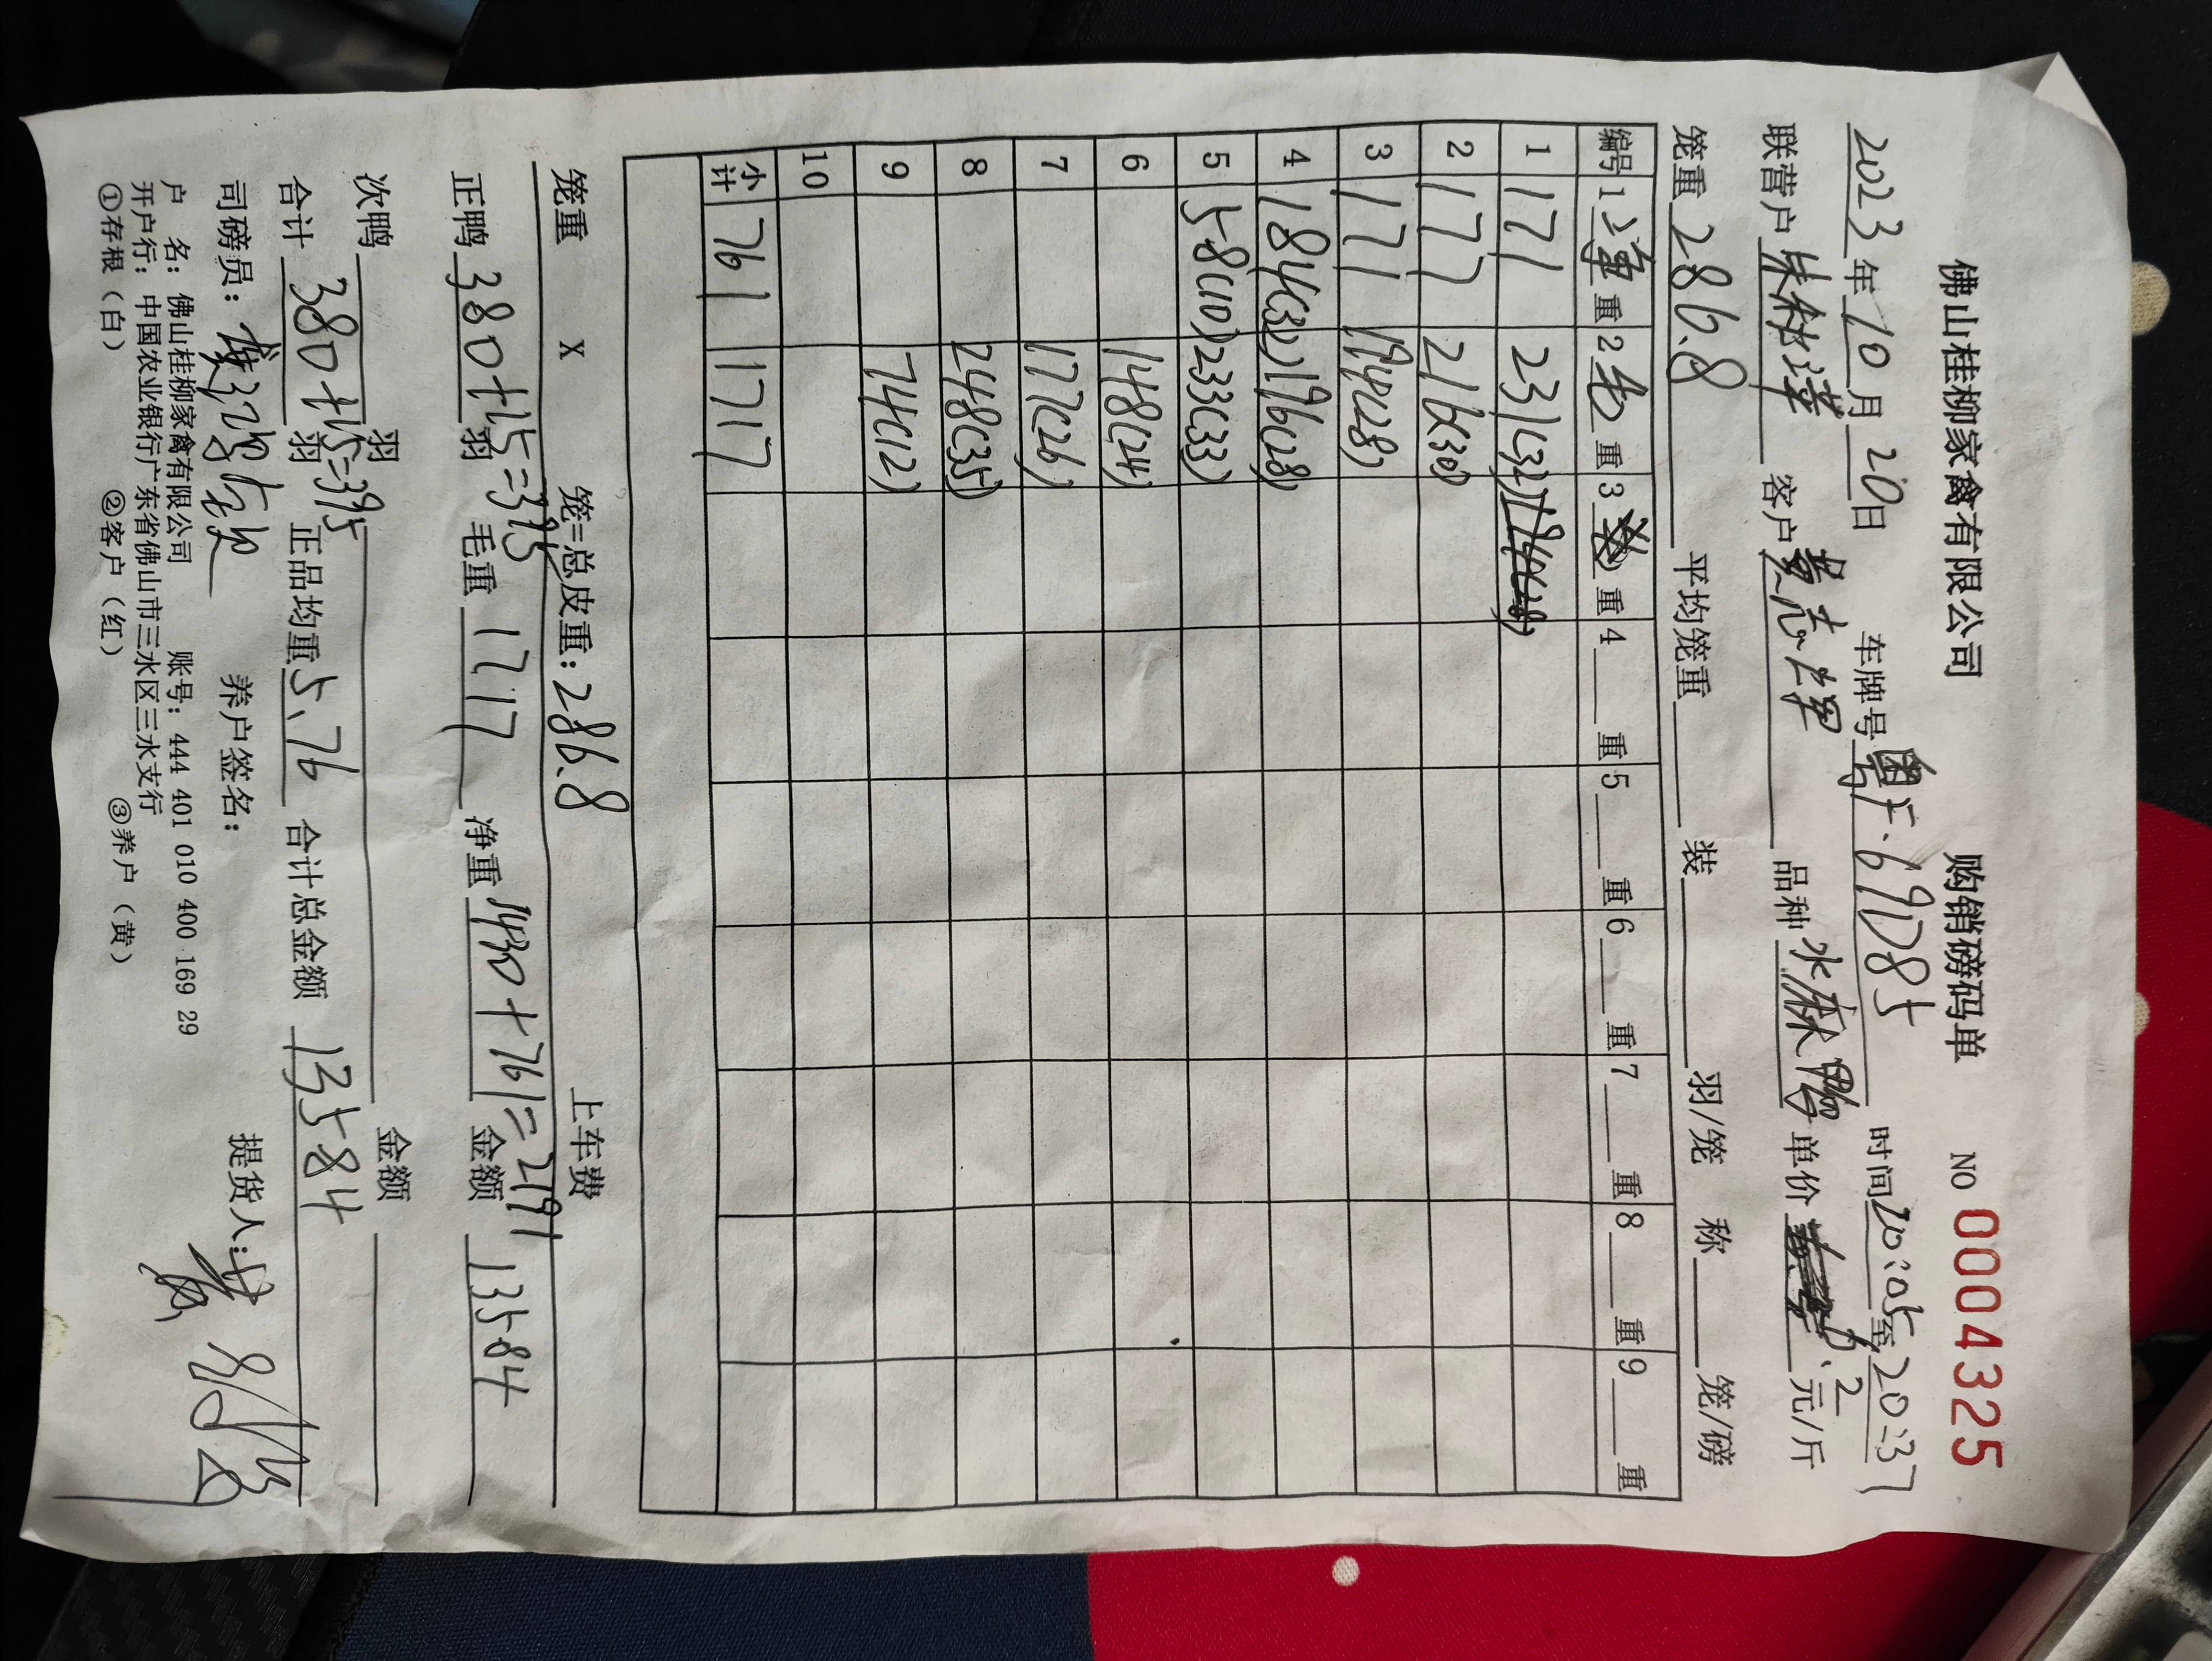 佛山桂柳家禽有限公司 购销磅码单 NO 0004325
2023年10月20日 车牌号粤F.69D85 时间20:05至20:37
联营户 客户黄志辉 品种水麻鸭 单价6.2元/斤
笼重286.8 平均笼重 装 羽/笼 称 笼/磅
编号 1净重 2毛重 3 重 4 重 5 重 6 重 7 重 8 重 9 重
1 171 231(32)
2 177 216(30)
3 171 194(28)
4 184(32) 196(28)
5 58(10) 233(33)
6 148(24)
7 177(26)
8 248(35)
9 74(12)
10
小计 761 1717
笼重 X 笼=总皮重：286.8 上车费
正鸭380+15=395羽 毛重1717 净重1430+761=2191 金额13584
次鸭 羽 金额
合计380+15=395羽 正品均重5.76 合计总金额13584
司磅员： 养户签名： 提货人：
户 名：佛山桂柳家禽有限公司 账号：444 401 010 400 169 29
开户行：中国农业银行广东省佛山市三水区三水支行
①存根（白） ②客户（红） ③养户（黄）